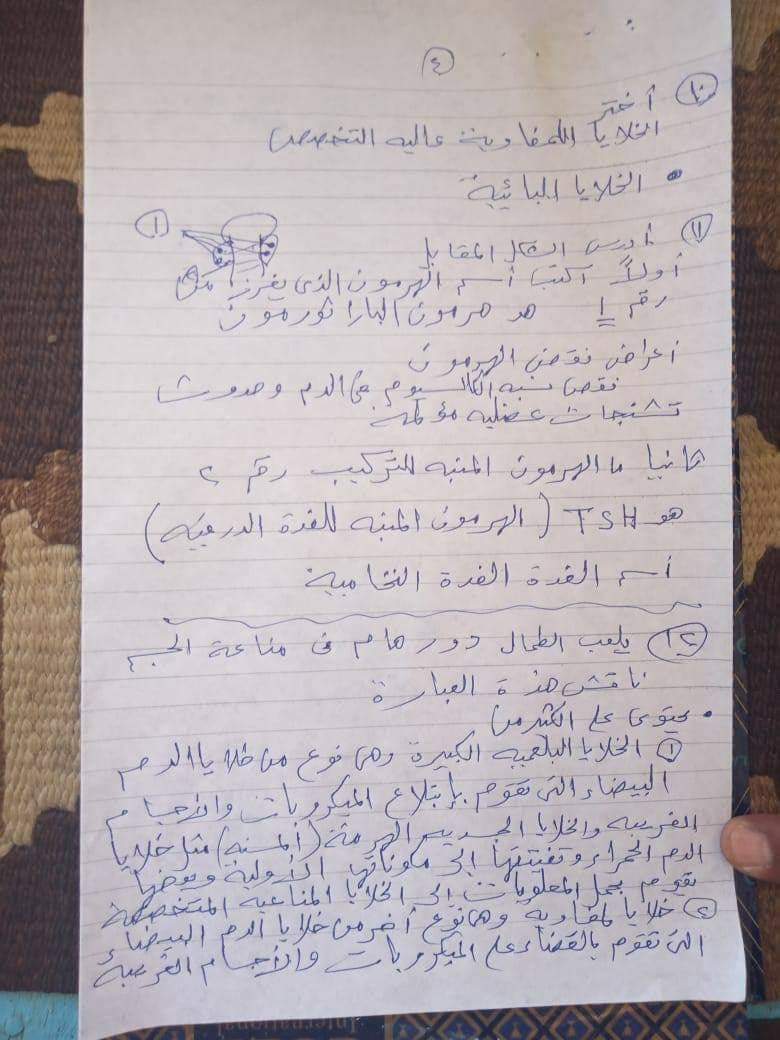 ٤
١٠ أختر
الخلايا اللمفاوية عاليه التخصص
• الخلايا البائية
١١ أدرس الشكل المقابل
١
أولاً أكتب أسم الهرمون الذى يفرز من
رقم 1 هو هرمون الباراثورمون
أعراض نقص الهرمون
نقص نسبه الكالسيوم فى الدم وحدوث
تشنجات عضليه مؤلمة
ثانيا ما الهرمون المنبه للتركيب رقم ٢
هو TSH (الهرمون المنبه للغدة الدرقيه)
أسم الغدة الغدة النخامية
١٢ يلعب الطحال دور هام فى مناعة الجسم
ناقش هذة العبارة
• يحتوى على الكثير من
١ الخلايا البلعميه الكبيرة وهى نوع من خلايا الدم
البيضاء التى تقوم بإبتلاع الميكروبات والأجسام
الغريبه والخلايا الجسديه الهرمة (المسنه) مثل خلايا
الدم الحمراء وتفتتها إلى مكوناتها الأولية وبعضها
تقوم بحمل المعلومات الى الخلايا المناعيه المتخصصة
٢ خلايا لمفاويه وهى نوع أخر من خلايا الدم البيضاء
التى تقوم بالقضاء على الميكروبات والأجسام الغريبة
International